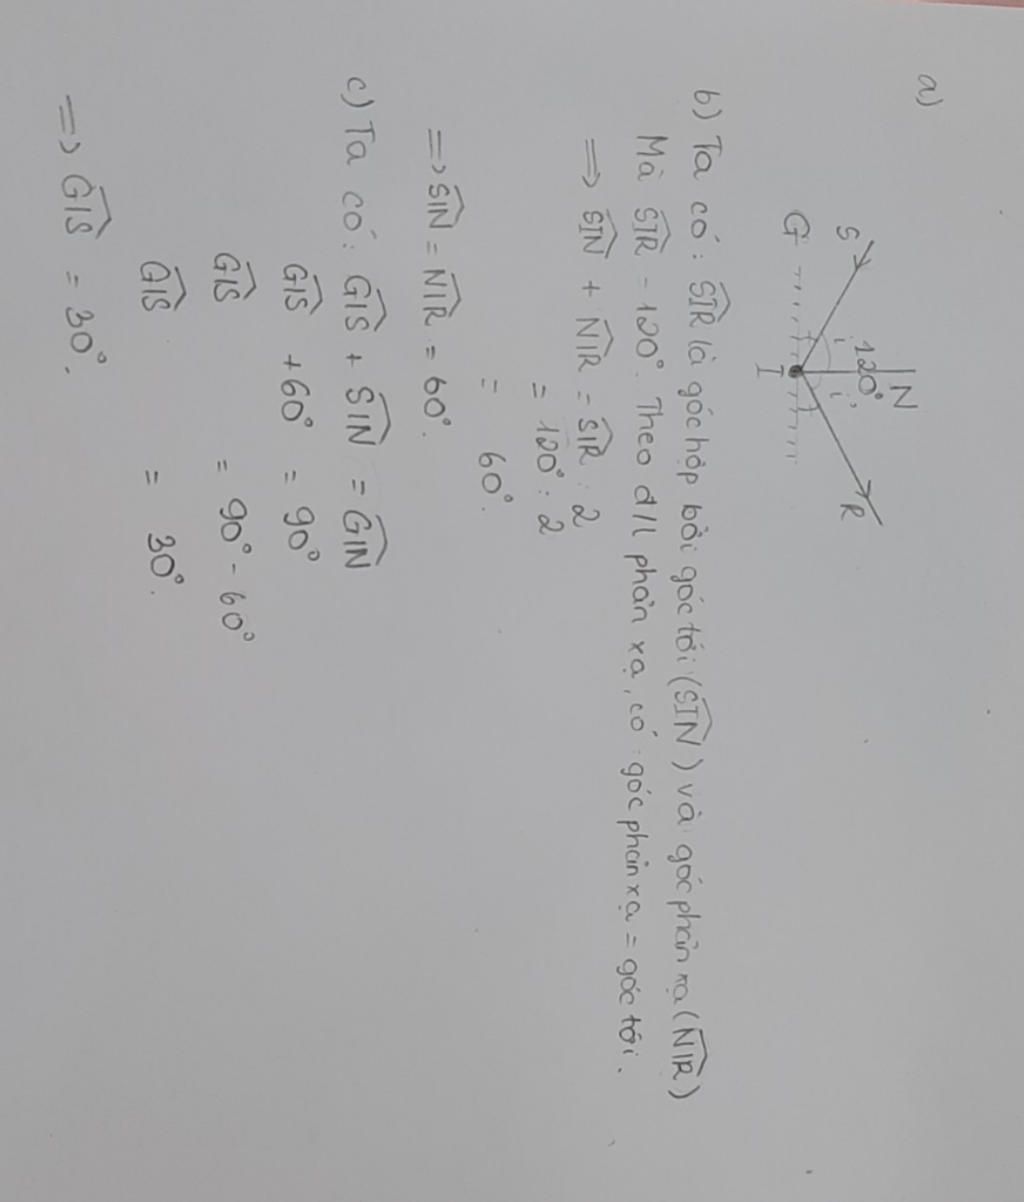 a)
N
120°
S
i
i'
R
G
I
b) Ta có: SIR là góc hợp bởi góc tới (SIN) và góc phản xạ (NIR)
Mà SIR = 120°. Theo đ/l phản xạ, có: góc phản xạ = góc tới.
=> SIN + NIR = SIR : 2
= 120° : 2
= 60°.
=> SIN = NIR = 60°.
c) Ta có: GIS + SIN = GIN
GIS + 60° = 90°
GIS = 90° - 60°
GIS = 30°.
=> GIS = 30°.